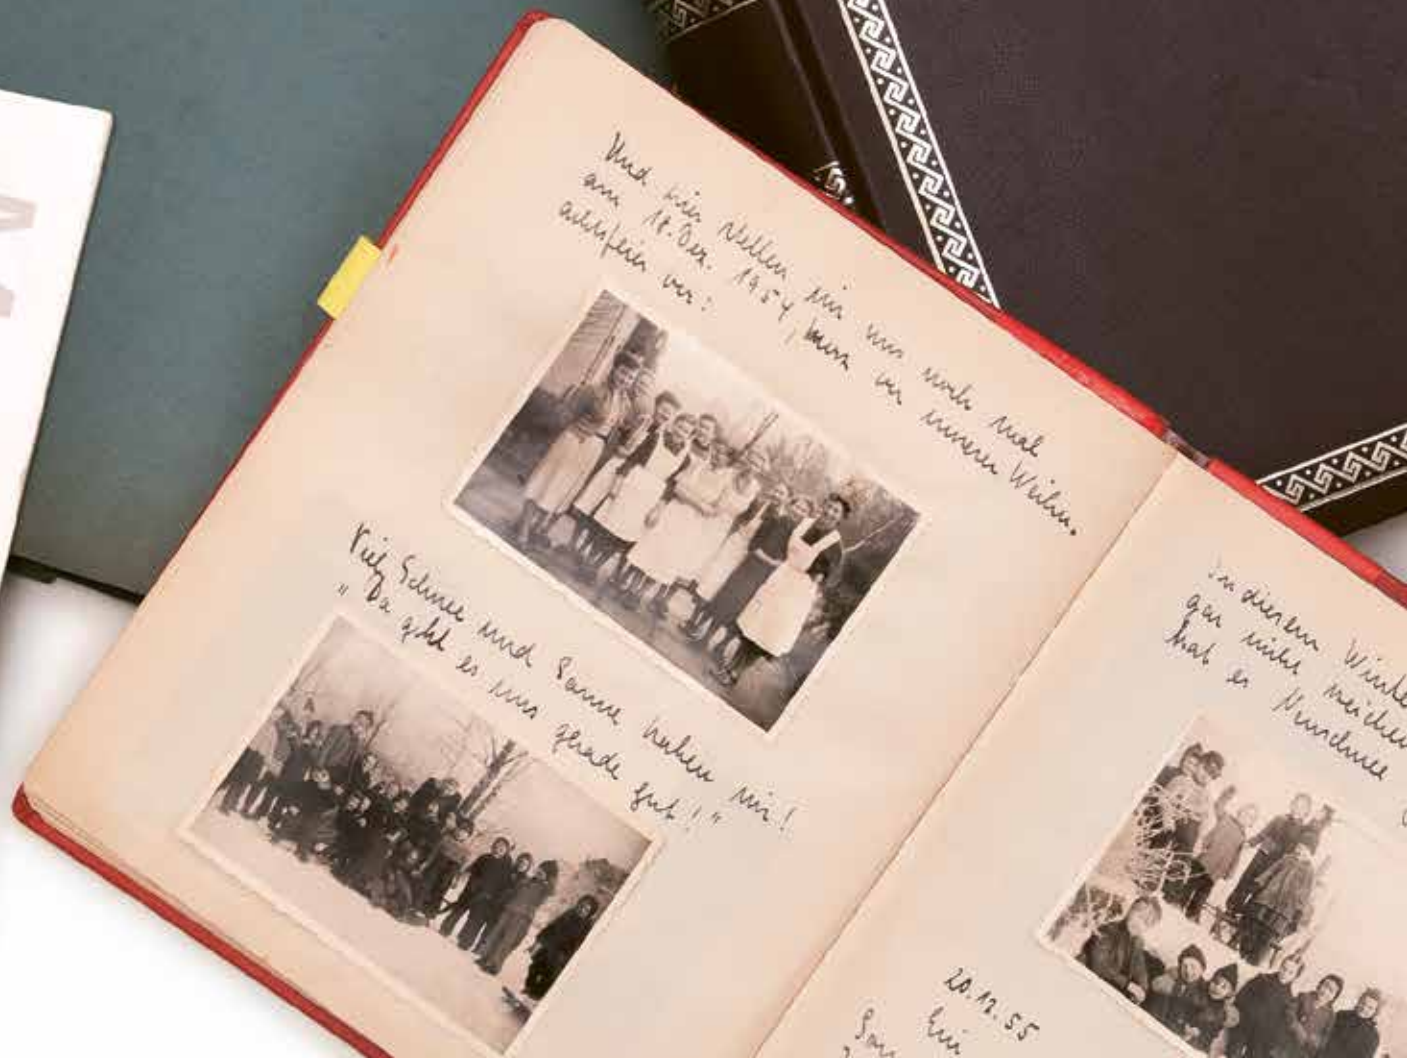 Und hier stellen wir uns noch mal
am 18. Dez. 1954, kurz vor unserer Weihn.
achtsfeier vor:
Viel Schnee und Sonne haben wir!
"Da geht es uns gerade gut!"
In diesem Winte
gar nicht weichen
hat es Neuschnee
20.12.55
Ein